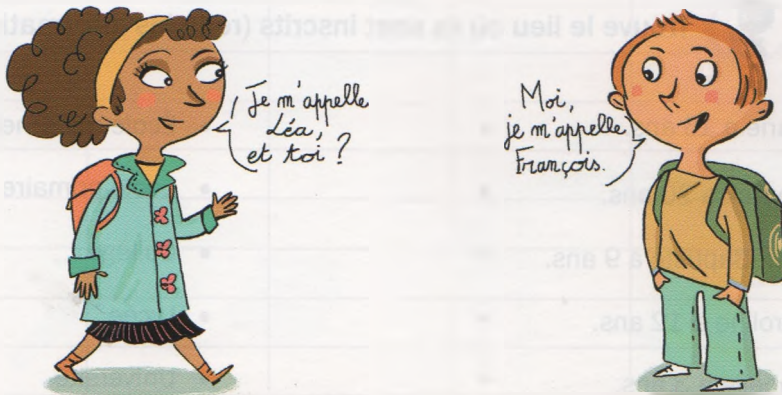 Je m'appelle
Léa,
et toi ?
Moi,
je m'appelle
François.